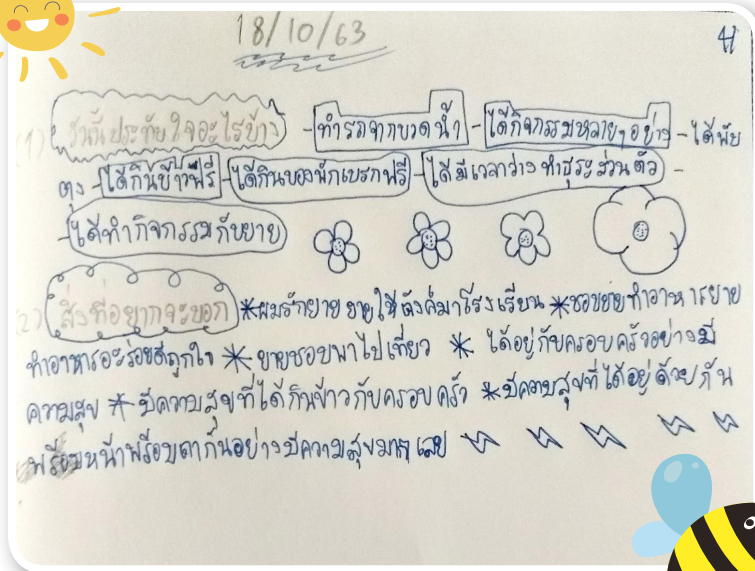 18/10/63
(1) วันนี้ประทับใจอะไรบ้าง - ทำรถจากขวดน้ำ - ได้กิจกรรมหลายๆอย่าง - ได้พับ
ถุง - ได้กินข้าวฟรี - ได้กินของพักเบรกฟรี - ได้มีเวลาว่างทำธุระส่วนตัว -
- ได้ทำกิจกรรมกับยาย
(2) สิ่งที่อยากจะบอก *ผมรักยาย ยายให้ตังค์มาโรงเรียน *ชอบยายทำอาหารยาย
ทำอาหารอะร่อยดีถูกใจ * ยายชอบพาไปเที่ยว * ได้อยู่กับครอบครัวอย่างมี
ความสุข * มีความสุขที่ได้กินข้าวกับครอบครัว *มีความสุขที่ได้อยู่ด้วยกัน
พร้อมหน้าพร้อมตากันอย่างมีความสุขมากเลย